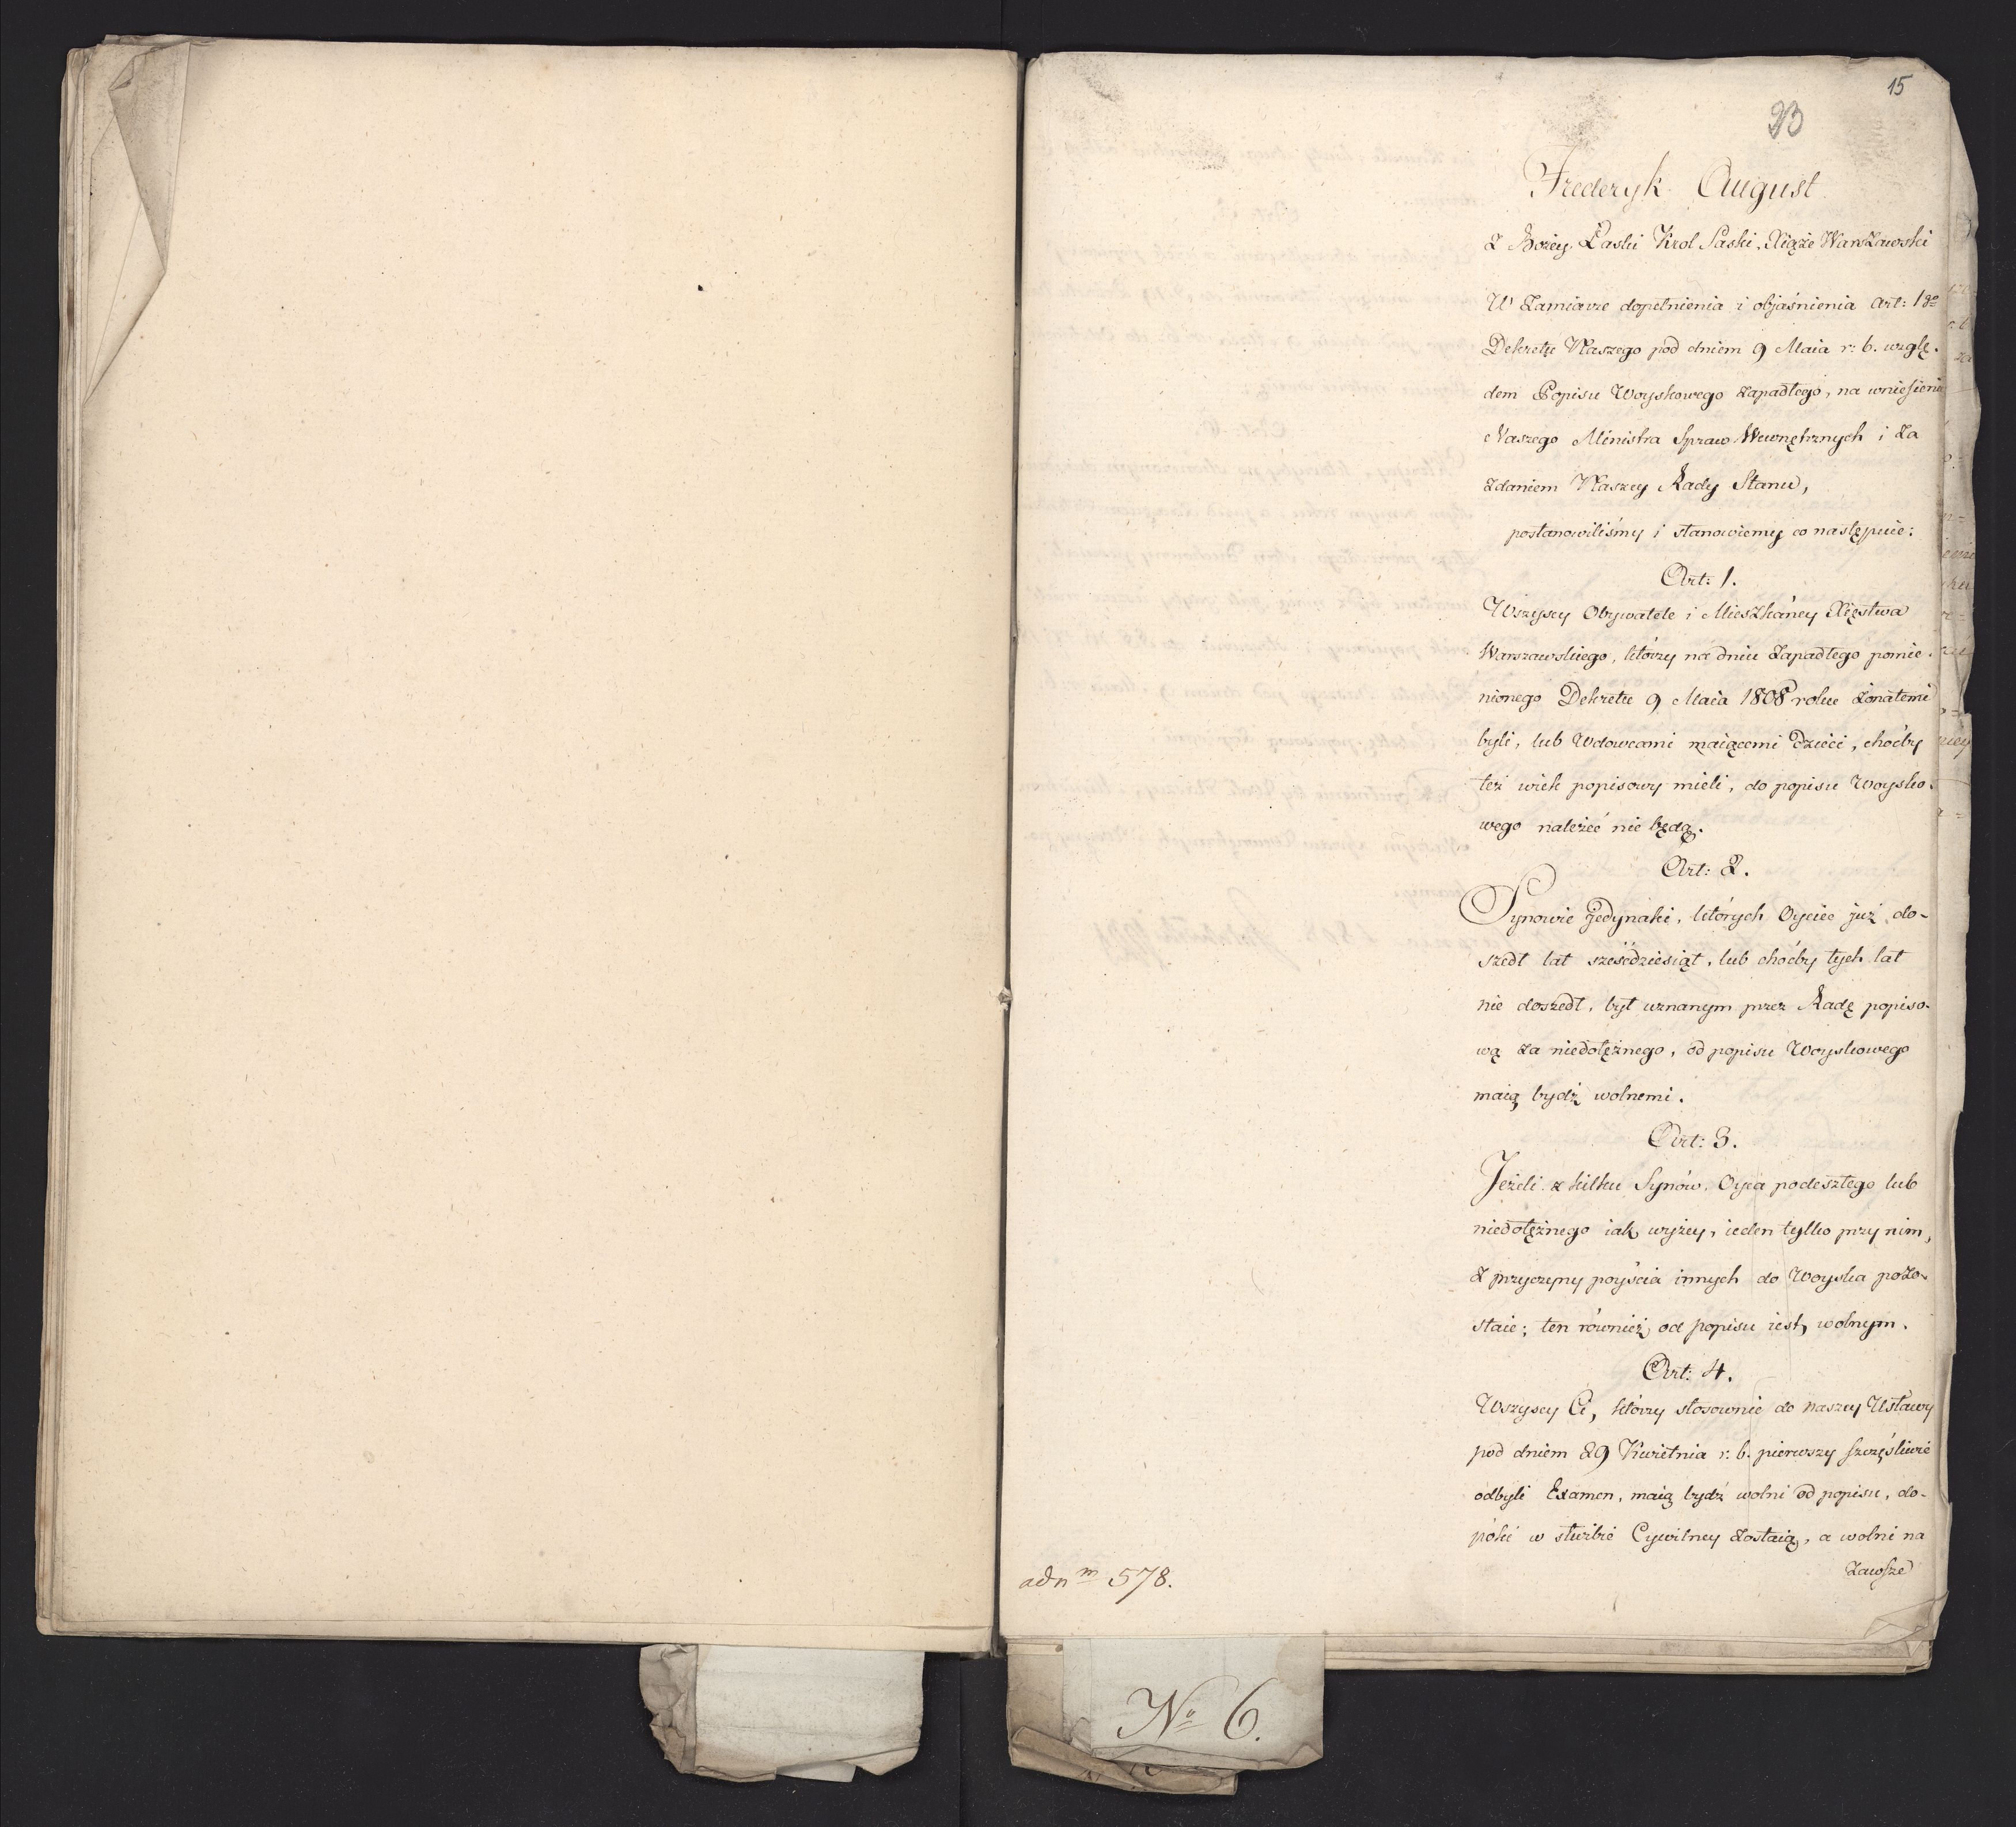 15
23
Frederyk August
Z Bożey Łaski Krol Saski, Xiąże Warszawski
W Zamiarze dopełnienia i objaśnienia Art: 18º
Dekretu Naszego pod dniem 9 Maia r: b. wzglę-
dem Popisu Woyskowego zapadłego, na wniesienie
Naszego Ministra Spraw Wewnętrznych i za
zdaniem Naszey Rady Stanu,
postanowiliśmy i stanowiemy co następuie:
Art: 1.
Wszyscy Obywatele i Mieszkańcy Xięstwa
Warszawskiego, którzy na dniu zapadłego pomie-
nionego Dekretu 9 Maia 1808 roku żonatemi
byli, lub Wdowcami maiącemi dzieci, choćby
też wiek popisowy mieli, do popisu Woysko-
wego należeć nie będą.
Art: 2.
Synowie jedynaki, których Oyciec już do-
szedł lat sześćdziesiąt, lub choćby tych lat
nie doszedł, był uznanym przez Radę popiso-
wą za niedołężnego, od popisu Woyskowego
maią bydź wolnemi.
Art: 3.
Jeżeli z kilku Synów Oyca podeszłego lub
niedołężnego iak wyżey, ieden tylko przy nim,
z przyczyny poyścia innych do Woyska pozo-
staie; ten również od popisu iest wolnym.
Art: 4.
Wszyscy Ci, którzy stosownie do naszey Ustawy
pod dniem 29 Kwietnia r: b. pierwszy szczęśliwie
odbyli Examen, maią bydź wolni od popisu, do-
póki w służbie Cywilney zostaią, a wolni na
zawsze
ad nm 578.
No 6.